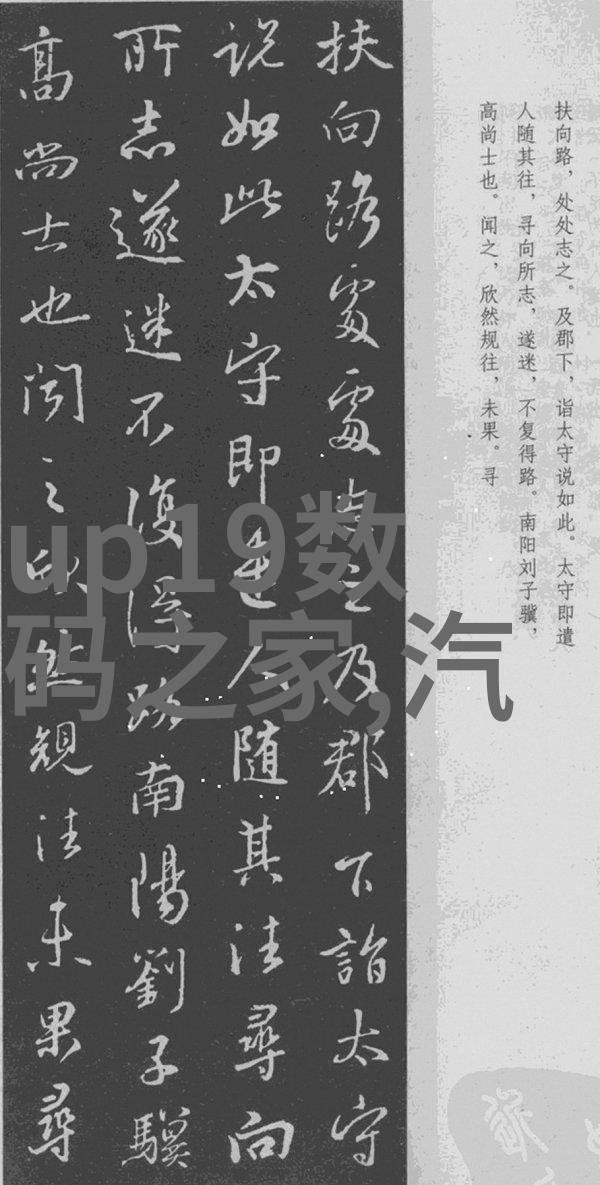 扶向路處處志之及郡下詣太守
说如此太守即遣人随其往尋向
所志遂迷不復得路南陽劉子驥
高尚士也闻之欣然規往未果尋
扶向路，处处志之。及郡下，诣太守说如此。太守即遣
人随其往，寻向所志，遂迷，不复得路。南阳刘子骥，
高尚士也。闻之，欣然规往，未果。寻
up19数
码之家,汽